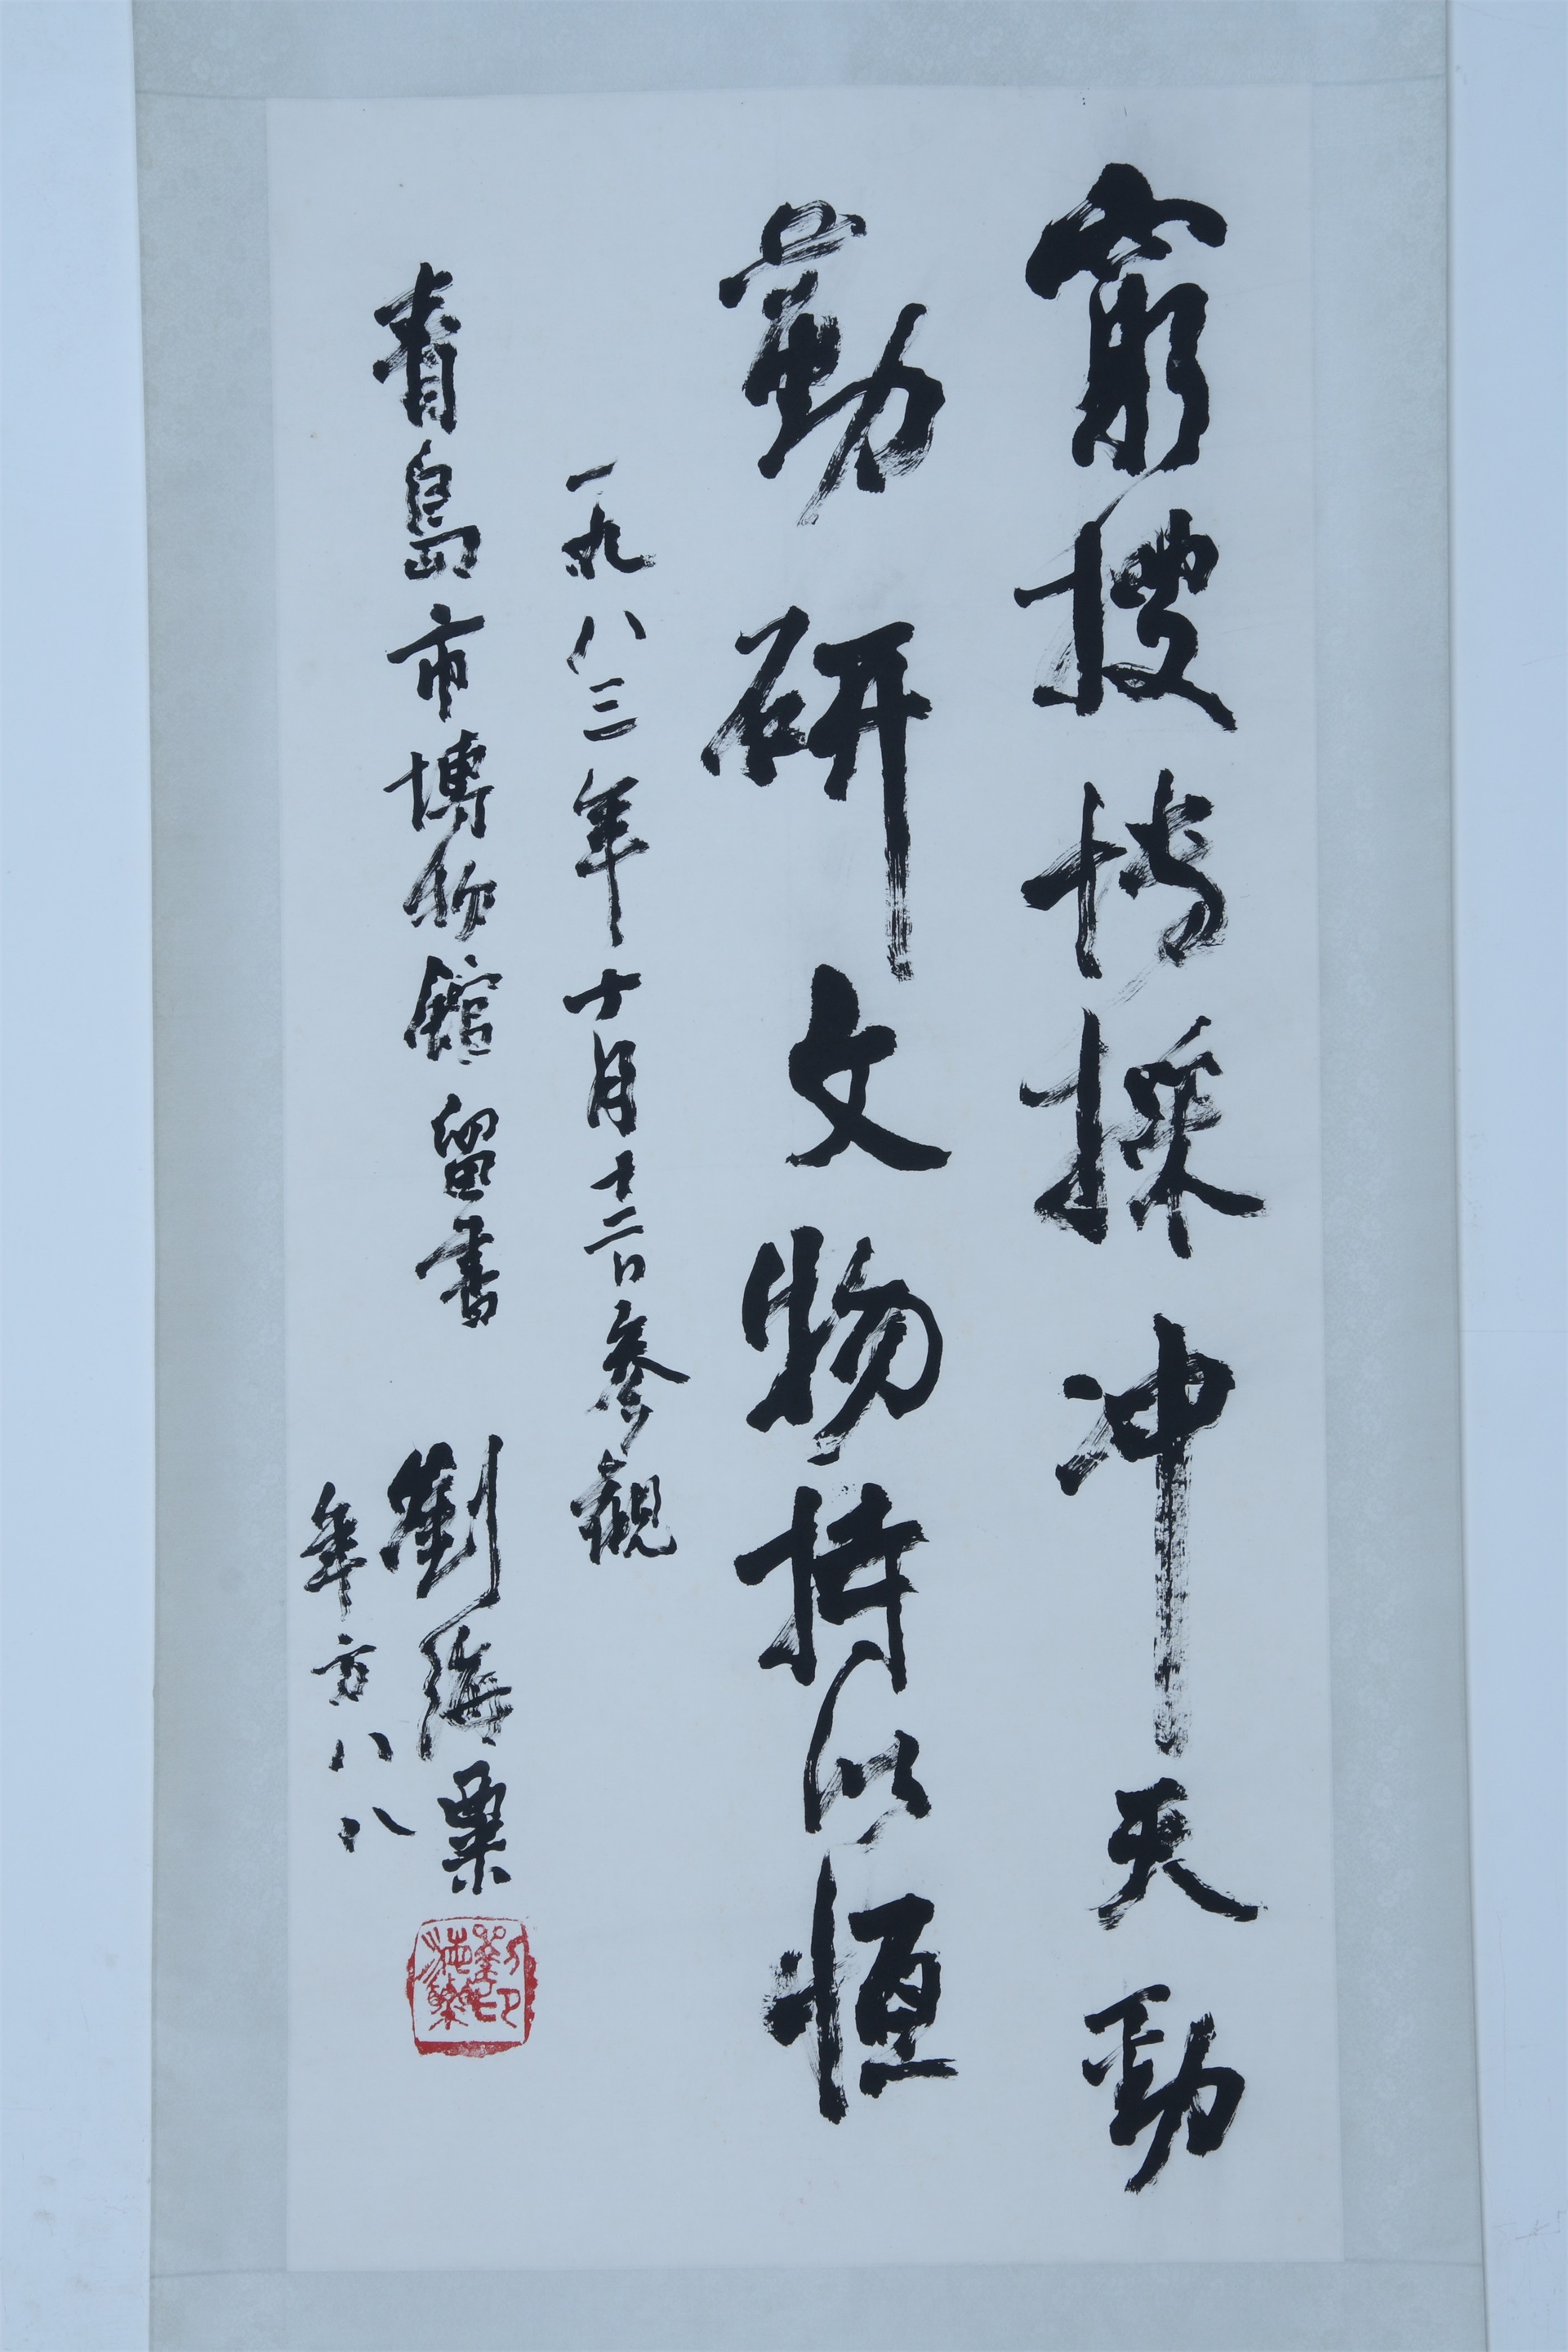 窮搜博採冲天勁
勤研文物持以恒
一九八三年十月十二日參觀
青島市博物館留書
劉海粟
年方八八
劉海粟印